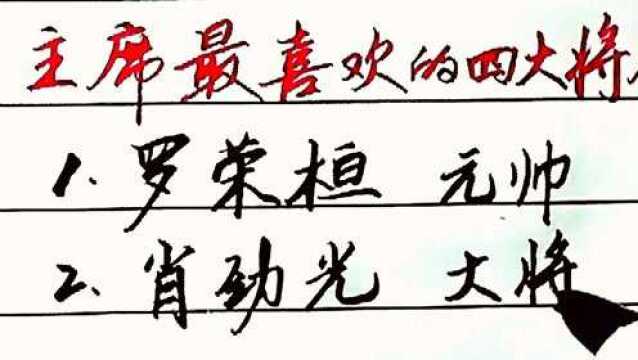 主席最喜欢的四大将
1.罗荣桓 元帅
2.肖劲光 大将